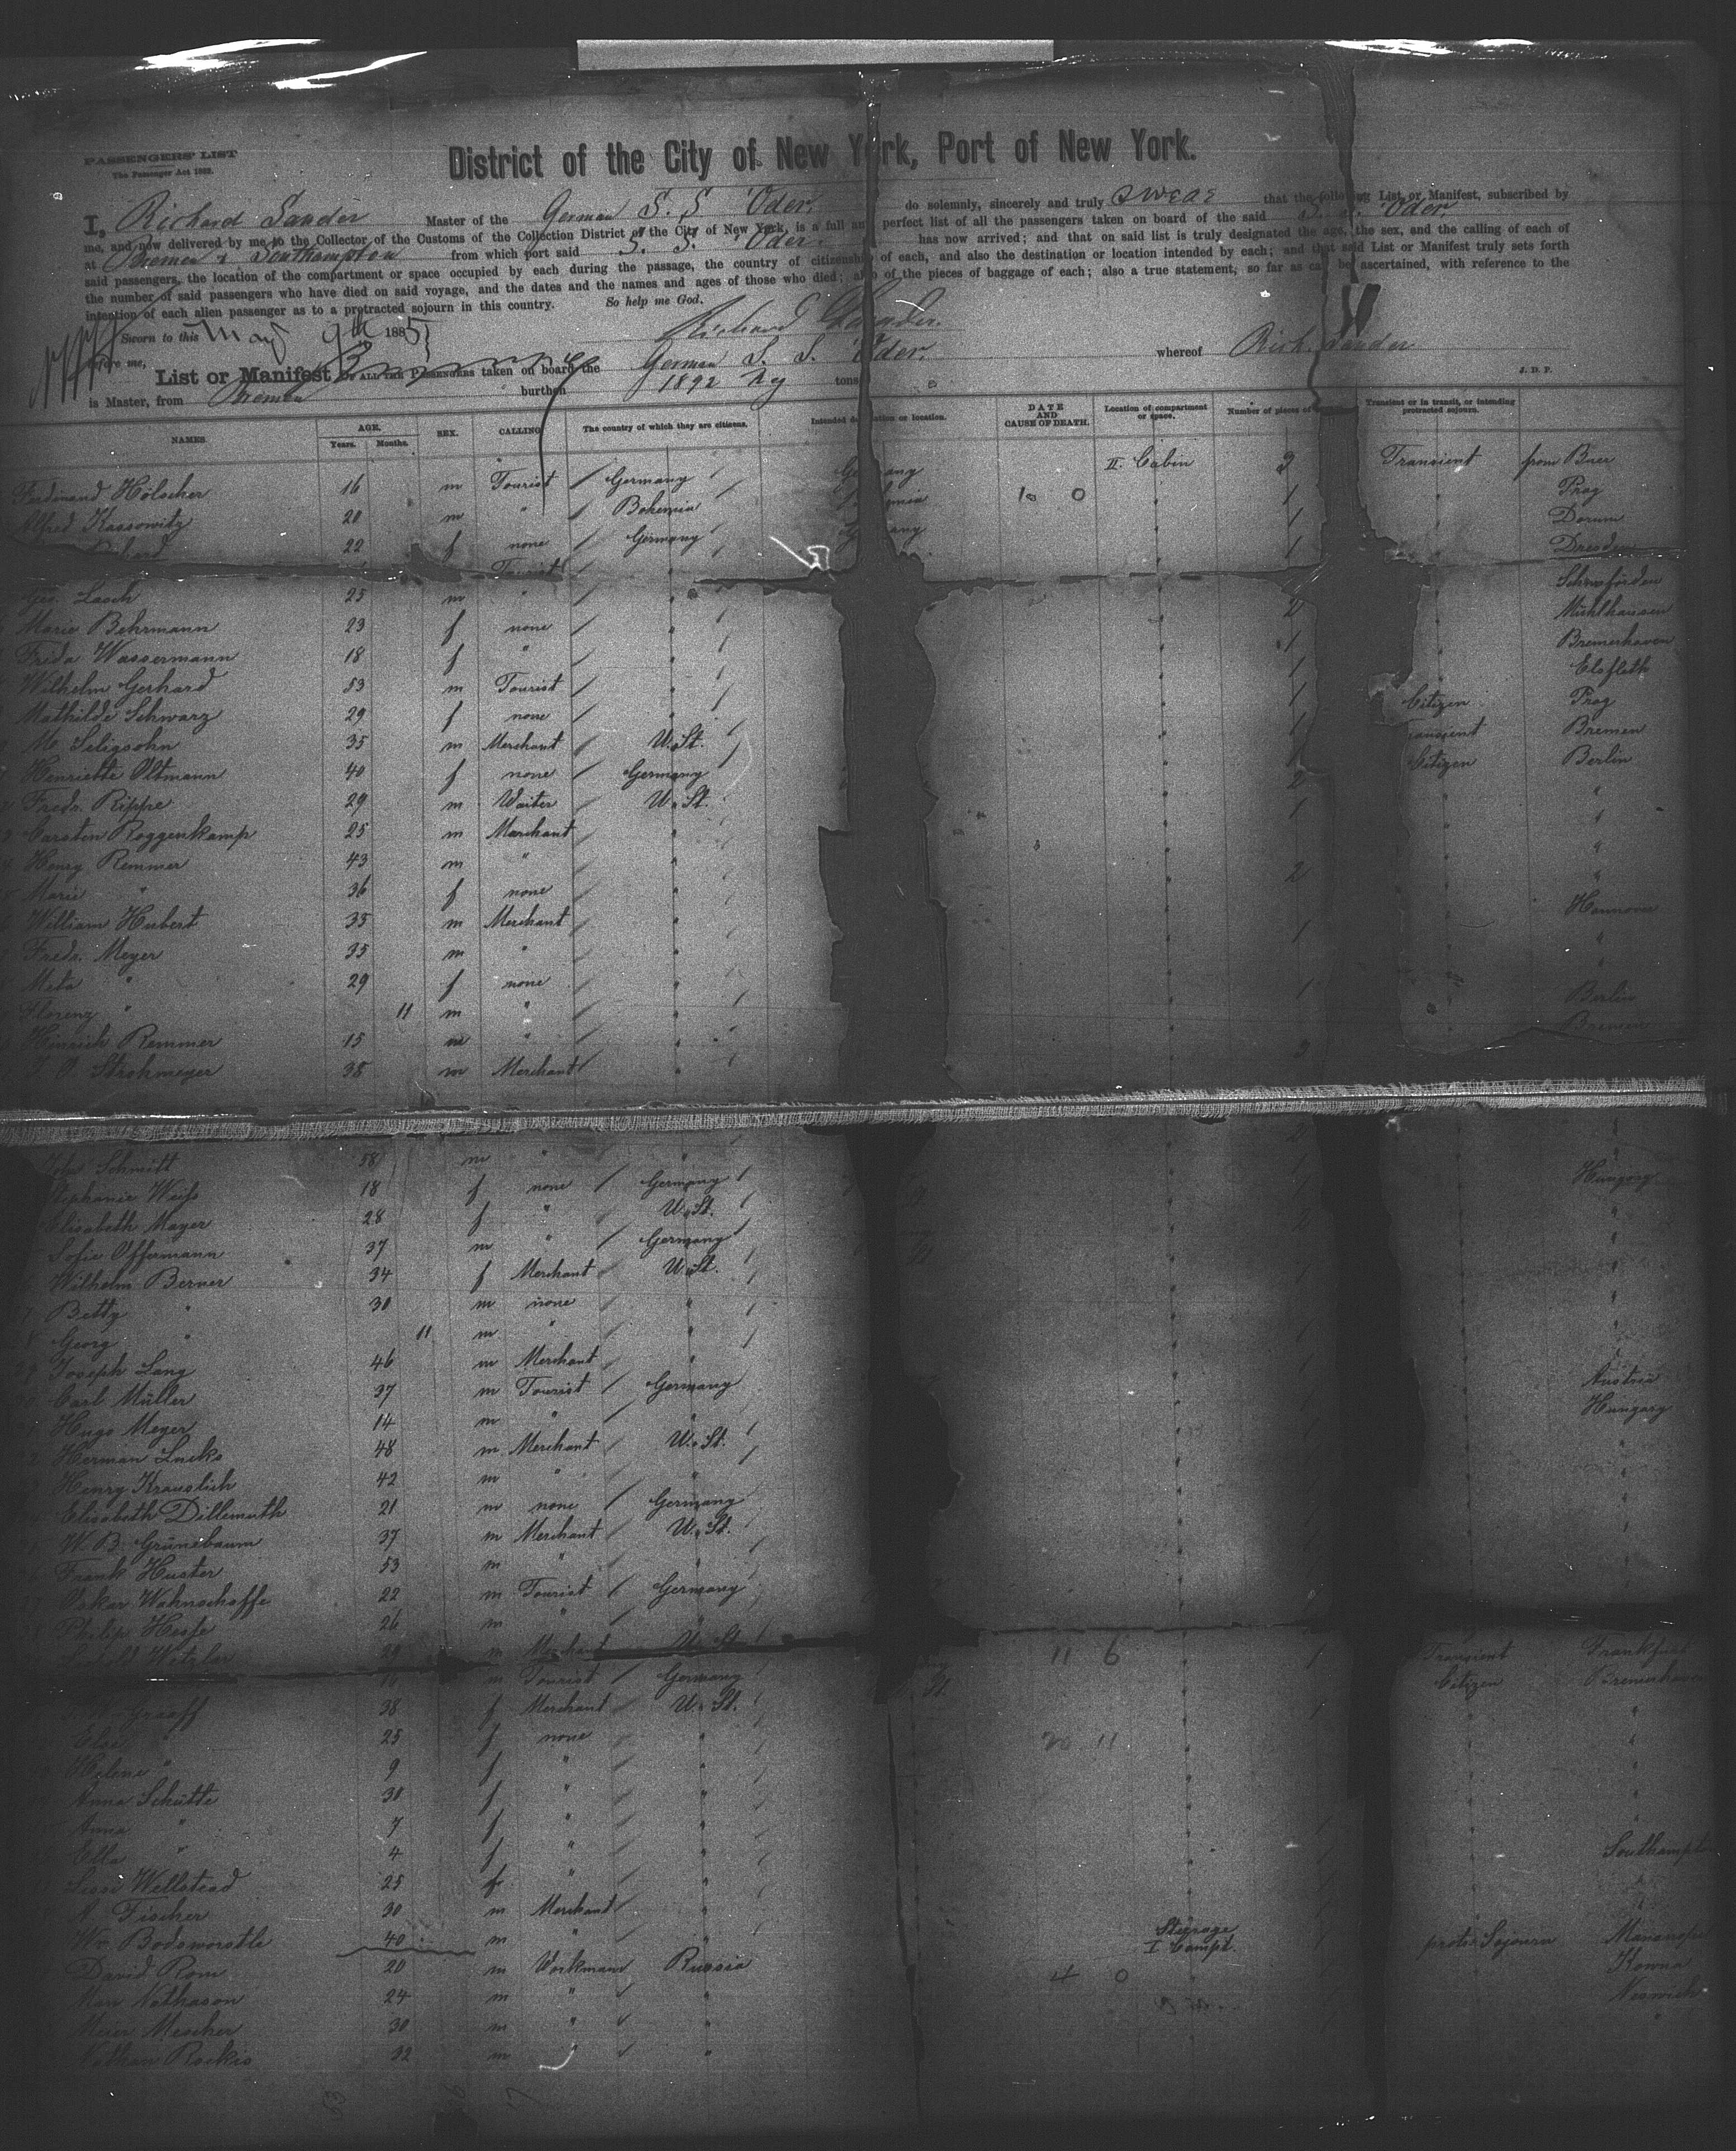 PASSENGERS' LIST
The Passenger Act 1882.
District of the City of New York, Port of New York.
I, Richard Sander Master of the German S. S. "Oder" do solemnly, sincerely and truly swear that the following List or Manifest, subscribed by
me, and now delivered by me to the Collector of the Customs of the Collection District of the City of New York, is a full and perfect list of all the passengers taken on board of the said S. S. "Oder"
at Bremen & Southampton from which port said S. S. "Oder" has now arrived; and that on said list is truly designated the age, the sex, and the calling of each of
said passengers, the location of the compartment or space occupied by each during the passage, the country of citizenship of each, and also the destination or location intended by each; and that said List or Manifest truly sets forth
the number of said passengers who have died on said voyage, and the dates and the names and ages of those who died; also of the pieces of baggage of each; also a true statement, so far as can be ascertained, with reference to the
intention of each alien passenger as to a protracted sojourn in this country. So help me God.
Sworn to this May 9th 1885 Richard Sander.
before me,
List or Manifest OF ALL THE PASSENGERS taken on board the German S. S. Oder. whereof Rich. Sander
is Master, from Bremen burthen 1892 tons J. D. P.
NAMES. AGE. Years. Months. SEX. CALLING. The country of which they are citizens. Intended destination or location. DATE AND CAUSE OF DEATH. Location of compartment or space. Number of pieces of Transient or in transit, or intending protracted sojourn.
Ferdinand Hölscher 16 m Tourist Germany Germany II. Cabin 2 Transient from Buer
Alfred Kassowitz 20 m " Bohemia Bohemia 10 0 1 " Prag
22 f none Germany Germany 1 Dorum
Tourist 1 Dresd
Geo. Lasch 25 m " "
Marie Behrmann 23 f none " 2 Mühlhausen
Frida Wassermann 18 f " " 1 Bremerhaven
Wilhelm Gerhard 53 m Tourist " 1 Elsfleth
Mathilde Schwarz 29 f none " 1 Citizen Prag
M. Seligsohn 35 m Merchant U. St. 1 Transient Bremen
Henriette Oltmann 40 f none Germany 1 Citizen Berlin
Fredr. Rippe 29 m Waiter U. St. 2 "
Carsten Roggenkamp 25 m Merchant " 1 "
Henry Remmer 43 m " " "
Marie " 36 f none " 2 "
William Hubert 35 m Merchant " Hannover
Fredr. Meyer 35 m " " 1 "
Meta " 29 f none " "
Florenz " 11 m " " 1 Berlin
Heinrich Remmer 15 m " " Bremen
Strohmeyer 38 m Merchant " 3
John Schmitt 58 m " " 2 "
Stephanie Weiss 18 f none Germany Hungary
Elisabeth Mayer 28 f " U. St. "
Sofie Offermann 37 m " Germany "
Wilhelm Berner 34 f Merchant U. St. "
Betty " 30 m none " "
Georg " 11 m " " "
Joseph Lang 46 m Merchant "
Carl Müller 37 m Tourist Germany Austria
Hugo Meyer 14 m " " Hungary
Herman Lucks 48 m Merchant U. St. "
Henry Krauslich 42 m " " "
Elisabeth Dillemuth 21 m none Germany "
W. B. Grünebaum 37 m Merchant U. St. "
Frank Huster 53 m " "
Oskar Wahnschaffe 22 m Tourist Germany
Philip Hesse 26 m " "
Wetzler 29 m Merchant U. St. 11 6 1 Transient Frankfurt
m Tourist Germany Citizen Bremerhaven
Graaff 38 f Merchant U. St. " "
Else 25 f none " 20 11 " "
Helene " 9 f " " "
Anna Schütte 30 f " " "
Anna " 7 f " " "
Ella " 4 f " " Southampton
Wellstead 25 f " " "
Fischer 30 m Merchant " "
Wm. Bodsworstle 40 m " " Steerage I Compt. protr. Sojourn
David Rom 20 m Workman Russia 4 0 Kowna
Nathason 24 m " " Neswich
Meier Mescher 30 m " " "
Nathan Rockis 32 m " "